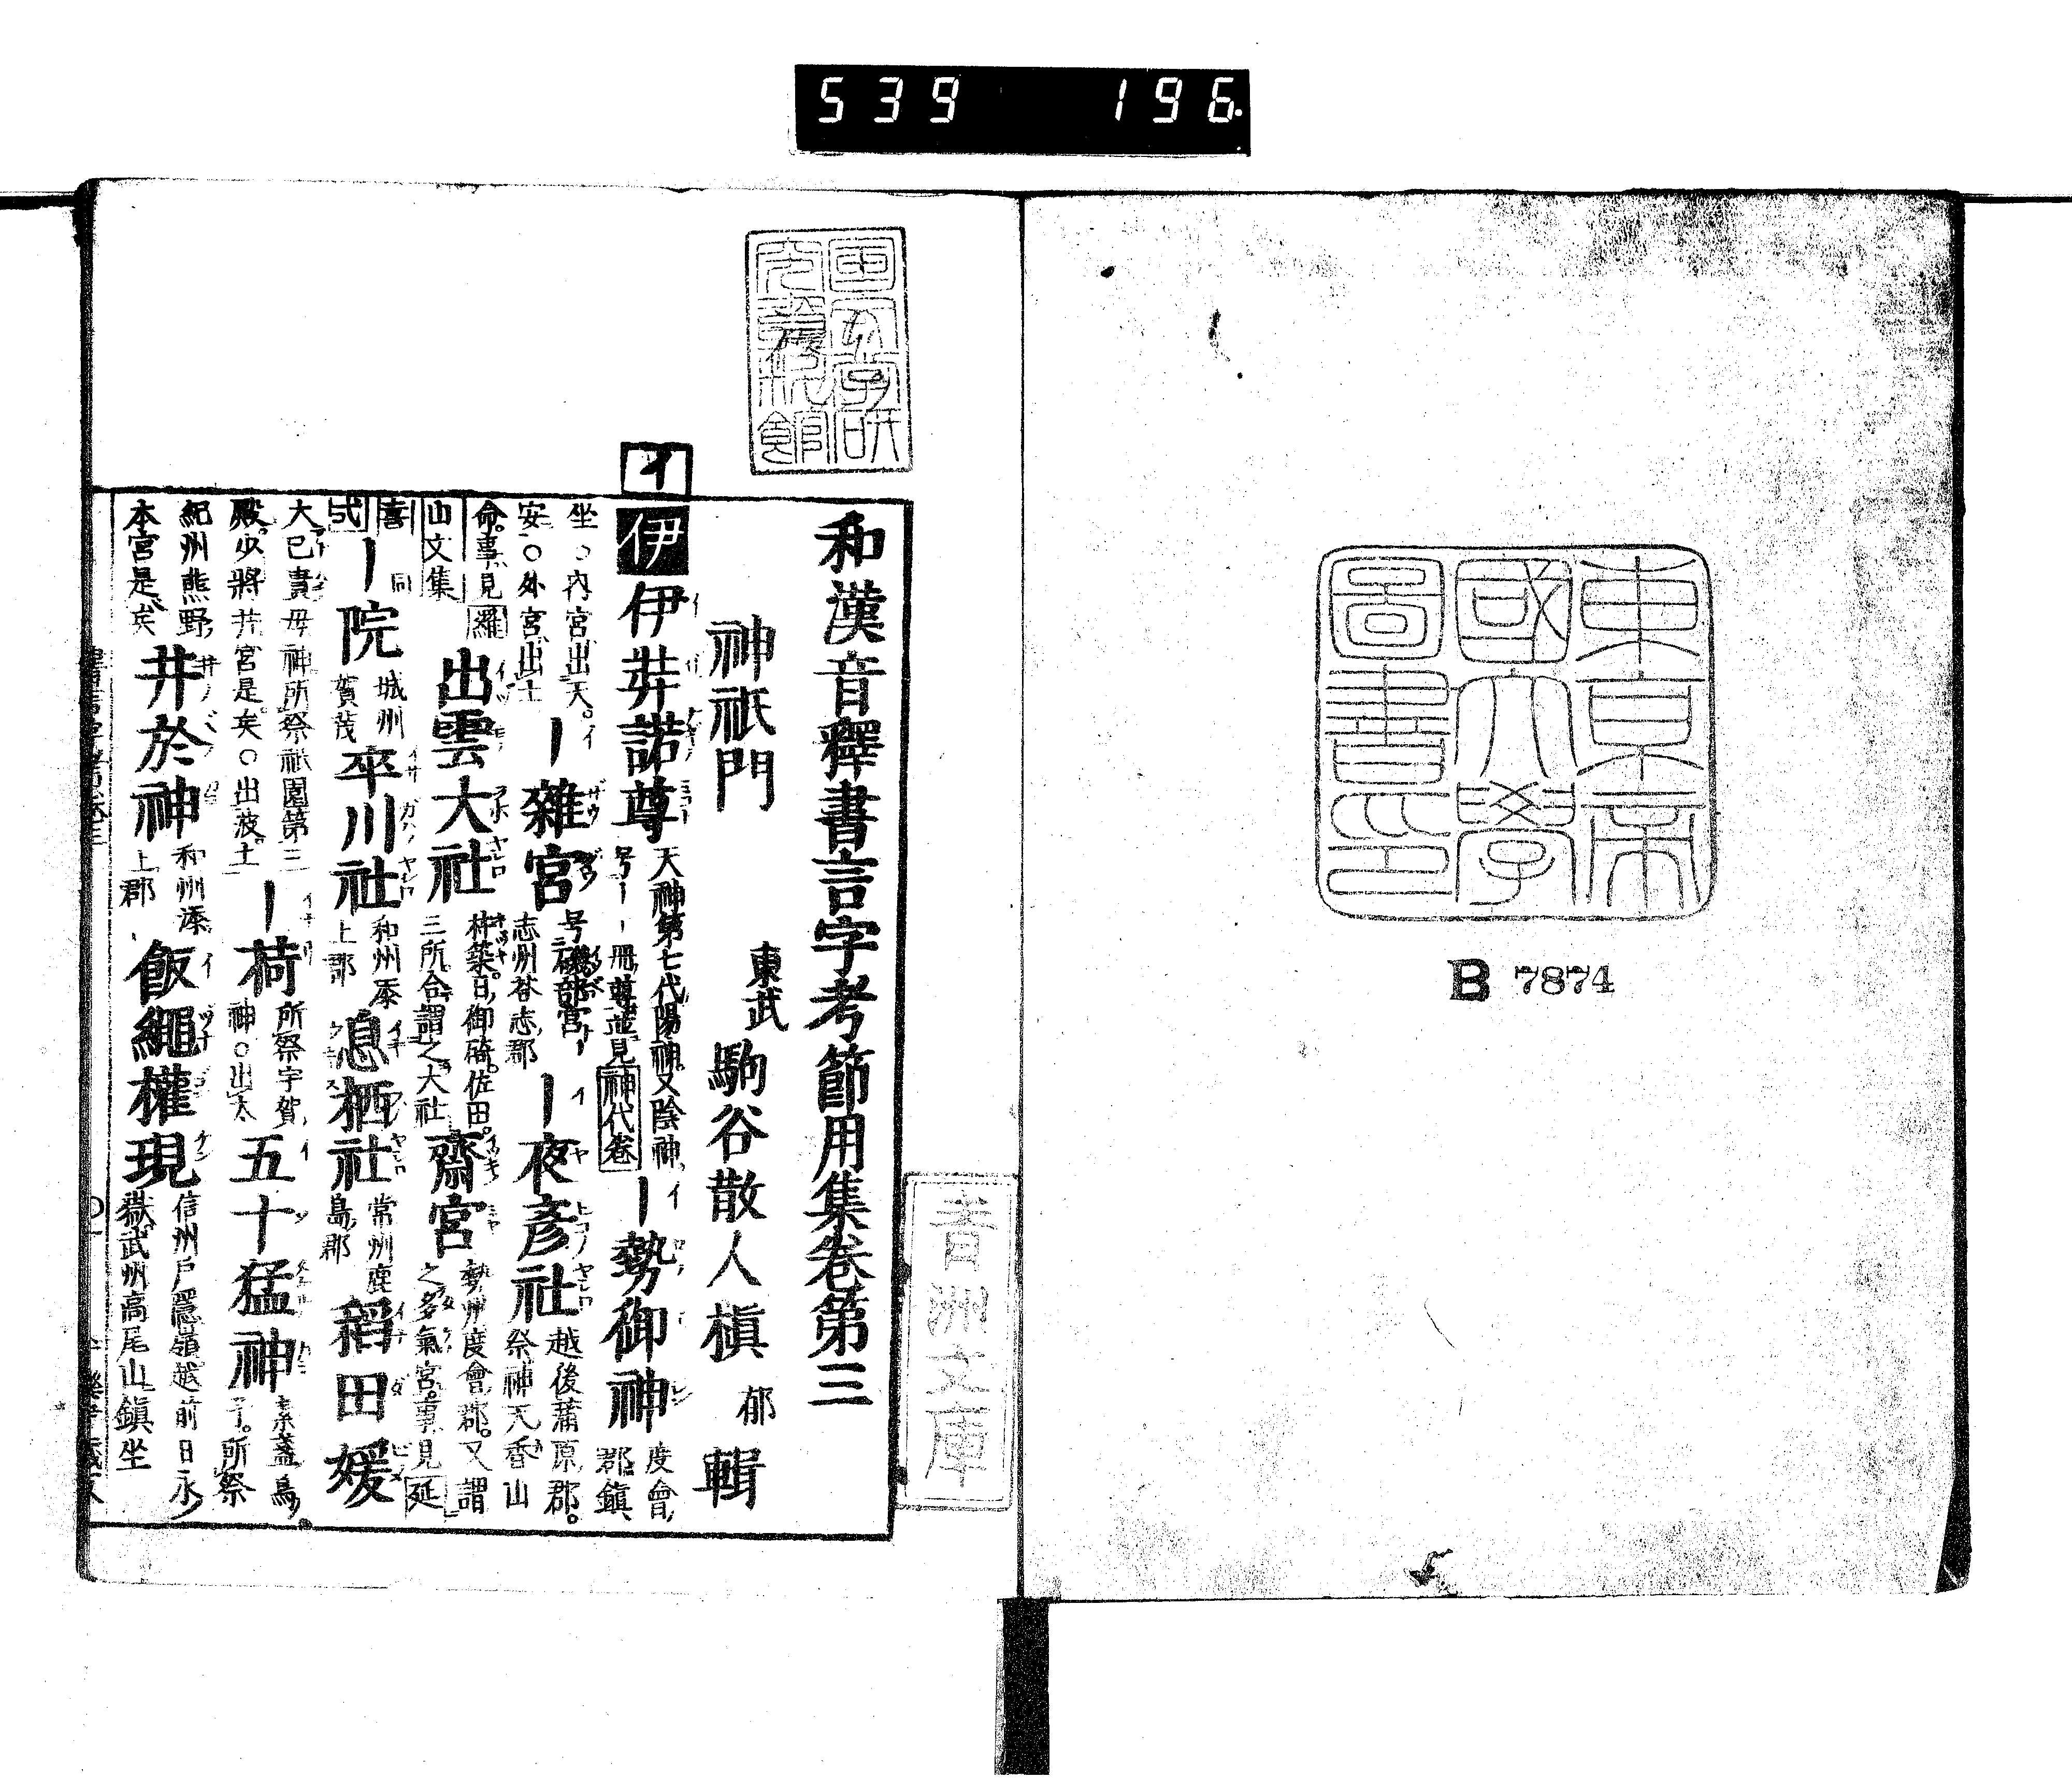 539 196
東京帝
國大學
圖書印
B 7874
青洲文庫
和漢音釋書言字考節用集卷第三
神祇門 東武 駒谷散人槇 郁 輯
イ
伊 伊弉諾尊 天神第七代陽神。又陰神号一一冊尊並見神代卷 一勢御神 度會郡鎭
坐。○內宮出天。安○外宮出土 一雜宮 号礒部宮 志州答志郡 一夜彥社 越後蒲原郡。祭神天香山
命。事見羅山文集 出雲大社 杵築。日御碕。佐田。三所。合謂之大社 齋宮 勢州度會郡。又謂之多氣宮。事見延
喜式 一院 同 城州賀茂 率川社 和州添上郡 息栖社 常州鹿島郡 稻田媛
大己貴母神所祭祇園第三殿。少將井宮是矣。○出波土 一荷 所祭宇賀神○出太 五十猛神 素盞烏子。所祭
紀州熊野本宮是矣 井於神 和州添上郡 飯繩權現 信州戶隱嶺越前日永嶽武州高尾山鎭坐